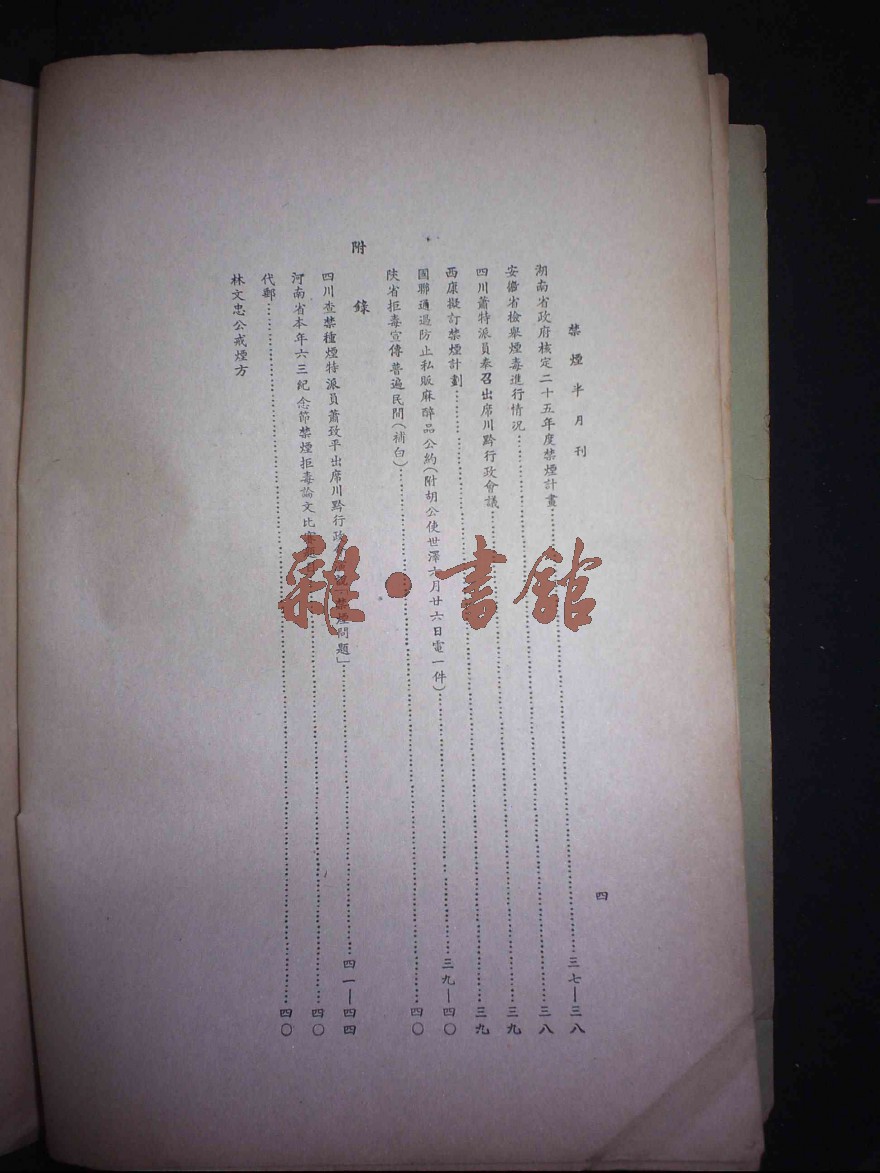 禁煙半月刊
四
湖南省政府核定二十五年度禁煙計畫……三七—三八
安徽省檢舉煙毒進行情况……三八
四川蕭特派員奉召出席川黔行政會議……三九
西康擬訂禁煙計劃……三九
國聯通過防止私販麻醉品公約(附胡公使世澤六月廿六日電一件)……三九—四〇
陝省拒毒宣傳普遍民間(補白)……四〇
附錄
四川查禁種煙特派員蕭致平出席川黔行政 禁煙問題」……四一—四四
河南省本年六三紀念節禁煙拒毒論文比……四〇
代郵……四〇
林文忠公戒煙方
雜·書館